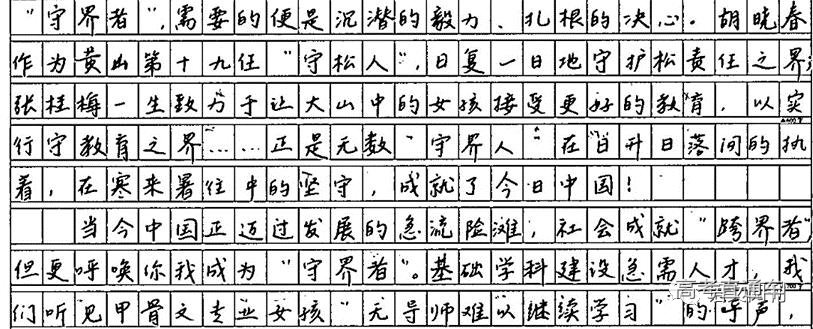 “守界者”,需要的便是沉潜的毅力、扎根的决心。胡晓春
作为黄山第十九任“守松人”,日复一日地守护松责任之界;
张桂梅一生致力于让大山中的女孩接受更好的教育,以实
行守教育之界……正是无数“守界人”在日升日落间的执
着,在寒来暑往中的坚守,成就了今日中国!
当今中国正迈过发展的急流险滩,社会成就“跨界者”,
但更呼唤你我成为“守界者”。基础学科建设急需人才,我
们听见甲骨文专业女孩“无导师难以继续学习”的呼声,